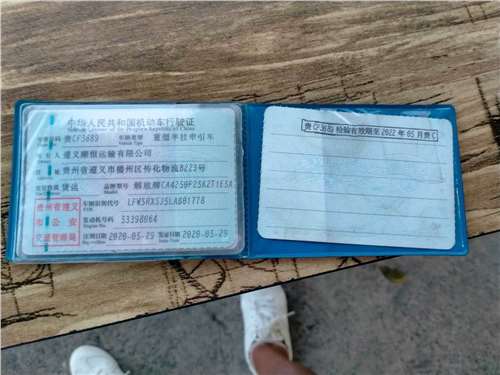 中华人民共和国机动车行驶证
Vehicle License of the People's Republic of China
号牌号码 贵CF3689 车辆类型 重型半挂牵引车
Vehicle Type
所有人 遵义顺恒运输有限公司
住 址 贵州省遵义市播州区传化物流B223号
使用性质 货运 品牌型号 解放牌CA4250P25K2T1E5A
贵州省遵义 车辆识别代号 LFWSRXSJ5LAB01778
VIN
市公安 发动机号码 53398064
Engine No.
交通管理局 注册日期 2020-05-29 发证日期 2020-05-29
Register Date Issue Date
贵CF3689 检验有效期至2022年05月贵C